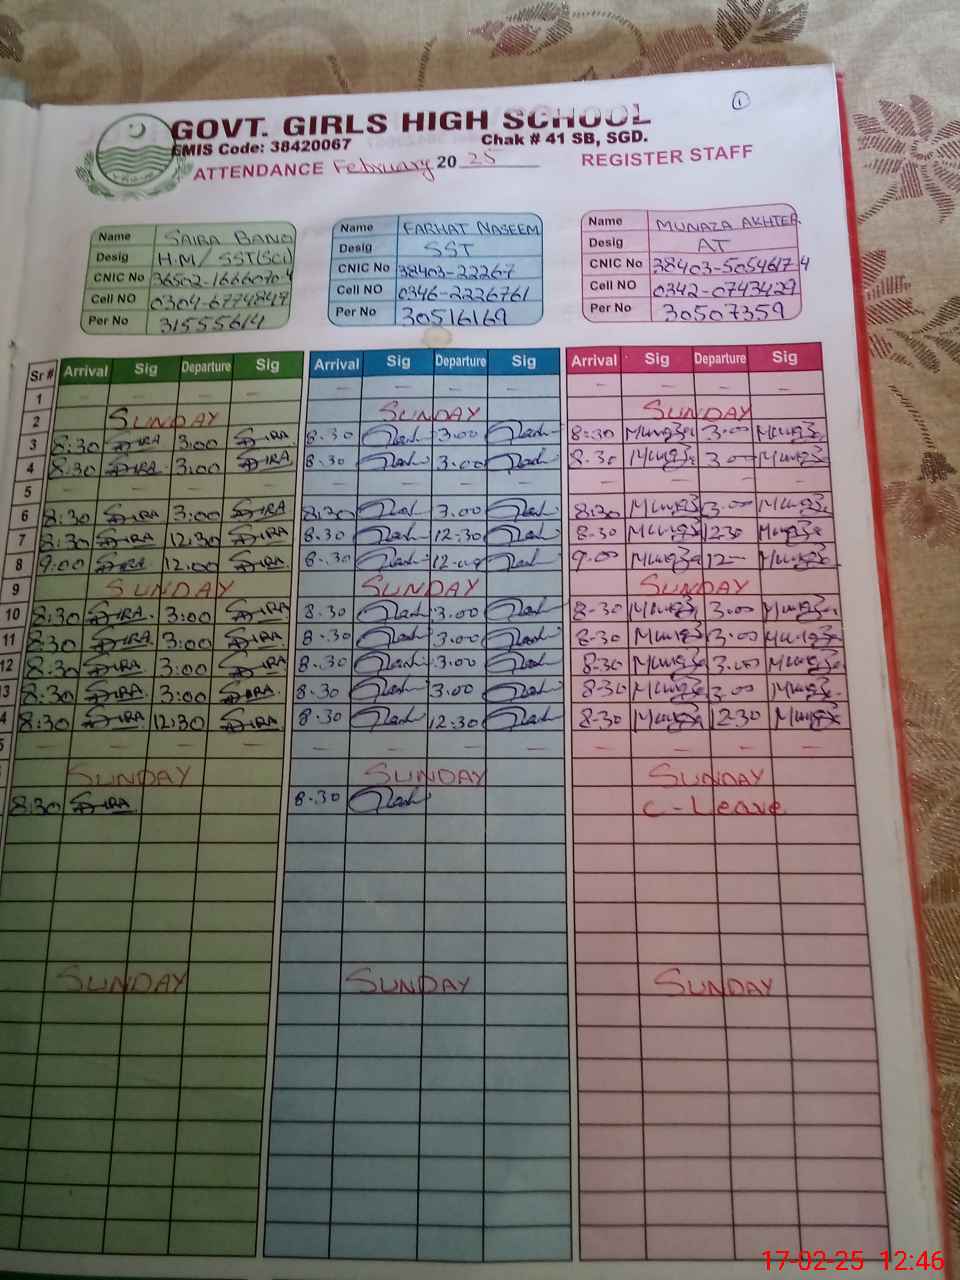 1
GOVT. GIRLS HIGH SCHOOL
EMIS Code: 38420067 Chak # 41 SB, SGD.
ATTENDANCE February 20 25 REGISTER STAFF
Name SAIRA BANO
Desig H.M/ SST(SCI)
CNIC No 36502-1666070-4
Cell NO 0304-6774847
Per No 31555614
Name FARHAT NASEEM
Desig SST
CNIC No 38403-22267
Cell NO 0346-2226761
Per No 30516169
Name MUNAZA AKHTER
Desig AT
CNIC No 38403-5054617-4
Cell NO 0342-0743429
Per No 30507359
Sr # Arrival Sig Departure Sig Arrival Sig Departure Sig Arrival Sig Departure Sig
1 - - - - - - - - - - - -
2 SUNDAY SUNDAY SUNDAY
3 8:30 SIRA 3:00 SIRA 8.30 3.00 8:30 Munaza 3.00 Munaza
4 8:30 SIRA 3:00 SIRA 8.30 3.00 8.30 Munaza 3.00 Munaza
5 - - - - - - - - - - - -
6 8:30 SIRA 3:00 SIRA 8:30 3.00 8:30 Munaza 3.00 Munaza
7 8:30 SIRA 12:30 SIRA 8.30 12:30 8-30 Munaza 1230 Munaza
8 9:00 SIRA 12:00 SIRA 12.00 9.00 Munaza 12- Munaza
9 SUNDAY SUNDAY SUNDAY
10 8:30 SIRA 3:00 SIRA 8.30 3.00 8-30 Munaza 3.00 Munaza
11 8:30 SIRA 3:00 SIRA 8.30 3.00 8-30 Munaza 3.00 Munaza
12 8:30 SIRA 3:00 SIRA 8.30 3.00 8-30 Munaza 3.00 Munaza
13 8:30 SIRA 3:00 SIRA 8.30 3.00 8-30 Munaza 3.00 Munaza
14 8:30 SIRA 12:30 SIRA 8.30 12:30 8-30 Munaza 12-30 Munaza
5 - - - - - - - - - - - -
SUNDAY SUNDAY SUNDAY
8:30 SIRA 8.30 C-Leave
SUNDAY SUNDAY SUNDAY
17-02-25 12:46